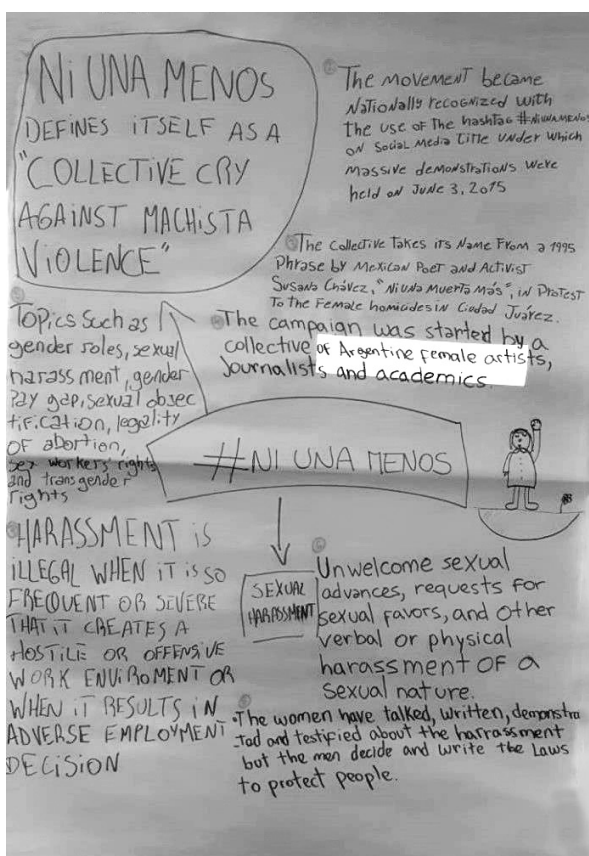 Ni UNA MENOS
DEFINES iTSELF AS A
"COLLECTiVE CRY
AGAINST MACHiSTA
ViOLENCE"
The MOVEMENT became
Nationally recognized with
the use of the hashtag #NiUNAMENOS
on social media title under which
massive demonstrations were
held on June 3, 2015
The collective Takes its Name From a 1995
Phrase by Mexican Poet and Activist
Susana Chávez, "Ni Una Muerta Más", in Protest
To the Female homicides in Ciudad Juárez.
Topics Such as
gender roles, sexual
harassment, gender
Pay gap, sexual objec
tification, legality
OF abortion,
sex workers rights
and transgender
rights
The campaign was started by a
collective of Argentine female artists,
Journalists and academics.
#NI UNA MENOS
HARASSMENT is
iLLEGAL WHEN iT iS SO
FREQUENT OR SEVERE
THAT iT CREATES A
HOSTiLE OR OFFENSiVE
WORK ENViROMENT OR
WHEN iT RESULTS iN
ADVERSE EMPLOYMENT
DECiSiON
SEXUAL
HARASSMENT
Unwelcome sexual
advances, requests for
sexual favors, and other
verbal or physical
harassment OF a
sexual nature.
The women have talked, written, demonstra
-tad and testified about the harrassment
but the men decide and write the Laws
to protect people.